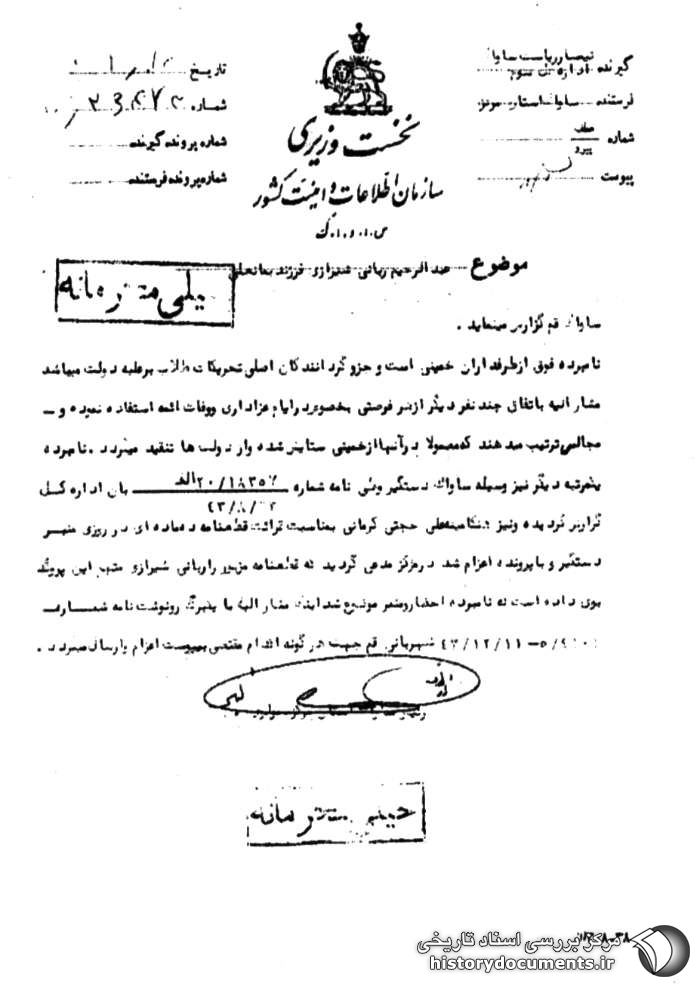 گیرنده تیمسار ریاست ساواک
اداره کل سوم
فرستنده ساواک استان مرکز
شماره عطف
پیرو
پیوست
تاریخ
شماره
شماره پرونده گیرنده
شماره پرونده فرستنده
نخست وزیری
سازمان اطلاعات و امنیت کشور
س.ا.و.ا.ک
موضوع عبدالرحیم ربانی شیرازی فرزند
خیلی محرمانه
ساواک قم گزارش مینماید .
نامبرده فوق از طرفداران خمینی است و جزو گردانندگان اصلی تحریکات طلاب بر علیه دولت میباشد
مشارالیه باتفاق چند نفر دیگر از هر فرصتی بخصوص در ایام عزاداری ووفات ائمه استفاده نموده و ـ
مجالسی ترتیب میدهند که معمولا در آنها از خمینی ستایش شده و از دولت ها تنقید میگردد . نامبرده
یکمرتبه دیگر نیز وسیله ساواک دستگیر وطی نامه شماره ۲۰/۱۸۳۵۷ الف بان اداره کل
گزارش گردیده ونیز هنگامیکه علی حجتی کرمانی بمناسبت قرائت قطعنامه ده ماده ای در روی منبر
دستگیر و با پرونده اعزام شد در مرکز مدعی گردید که قطعنامه مزبور را ربانی شیرازی متهم این پرونده
بوی داده است که نامبرده احضار ومنکر موضوع شد اینک مشارالیه با یکبرگ رونوشت نامه شماره
۴۳/۱۲/۱۱ شهربانی قم جهت هر گونه اقدام مقتضی به پیوست اعزام وارسال میگردد .
خیلی محرمانه
مرکز بررسی اسناد تاریخی
historydocuments.ir